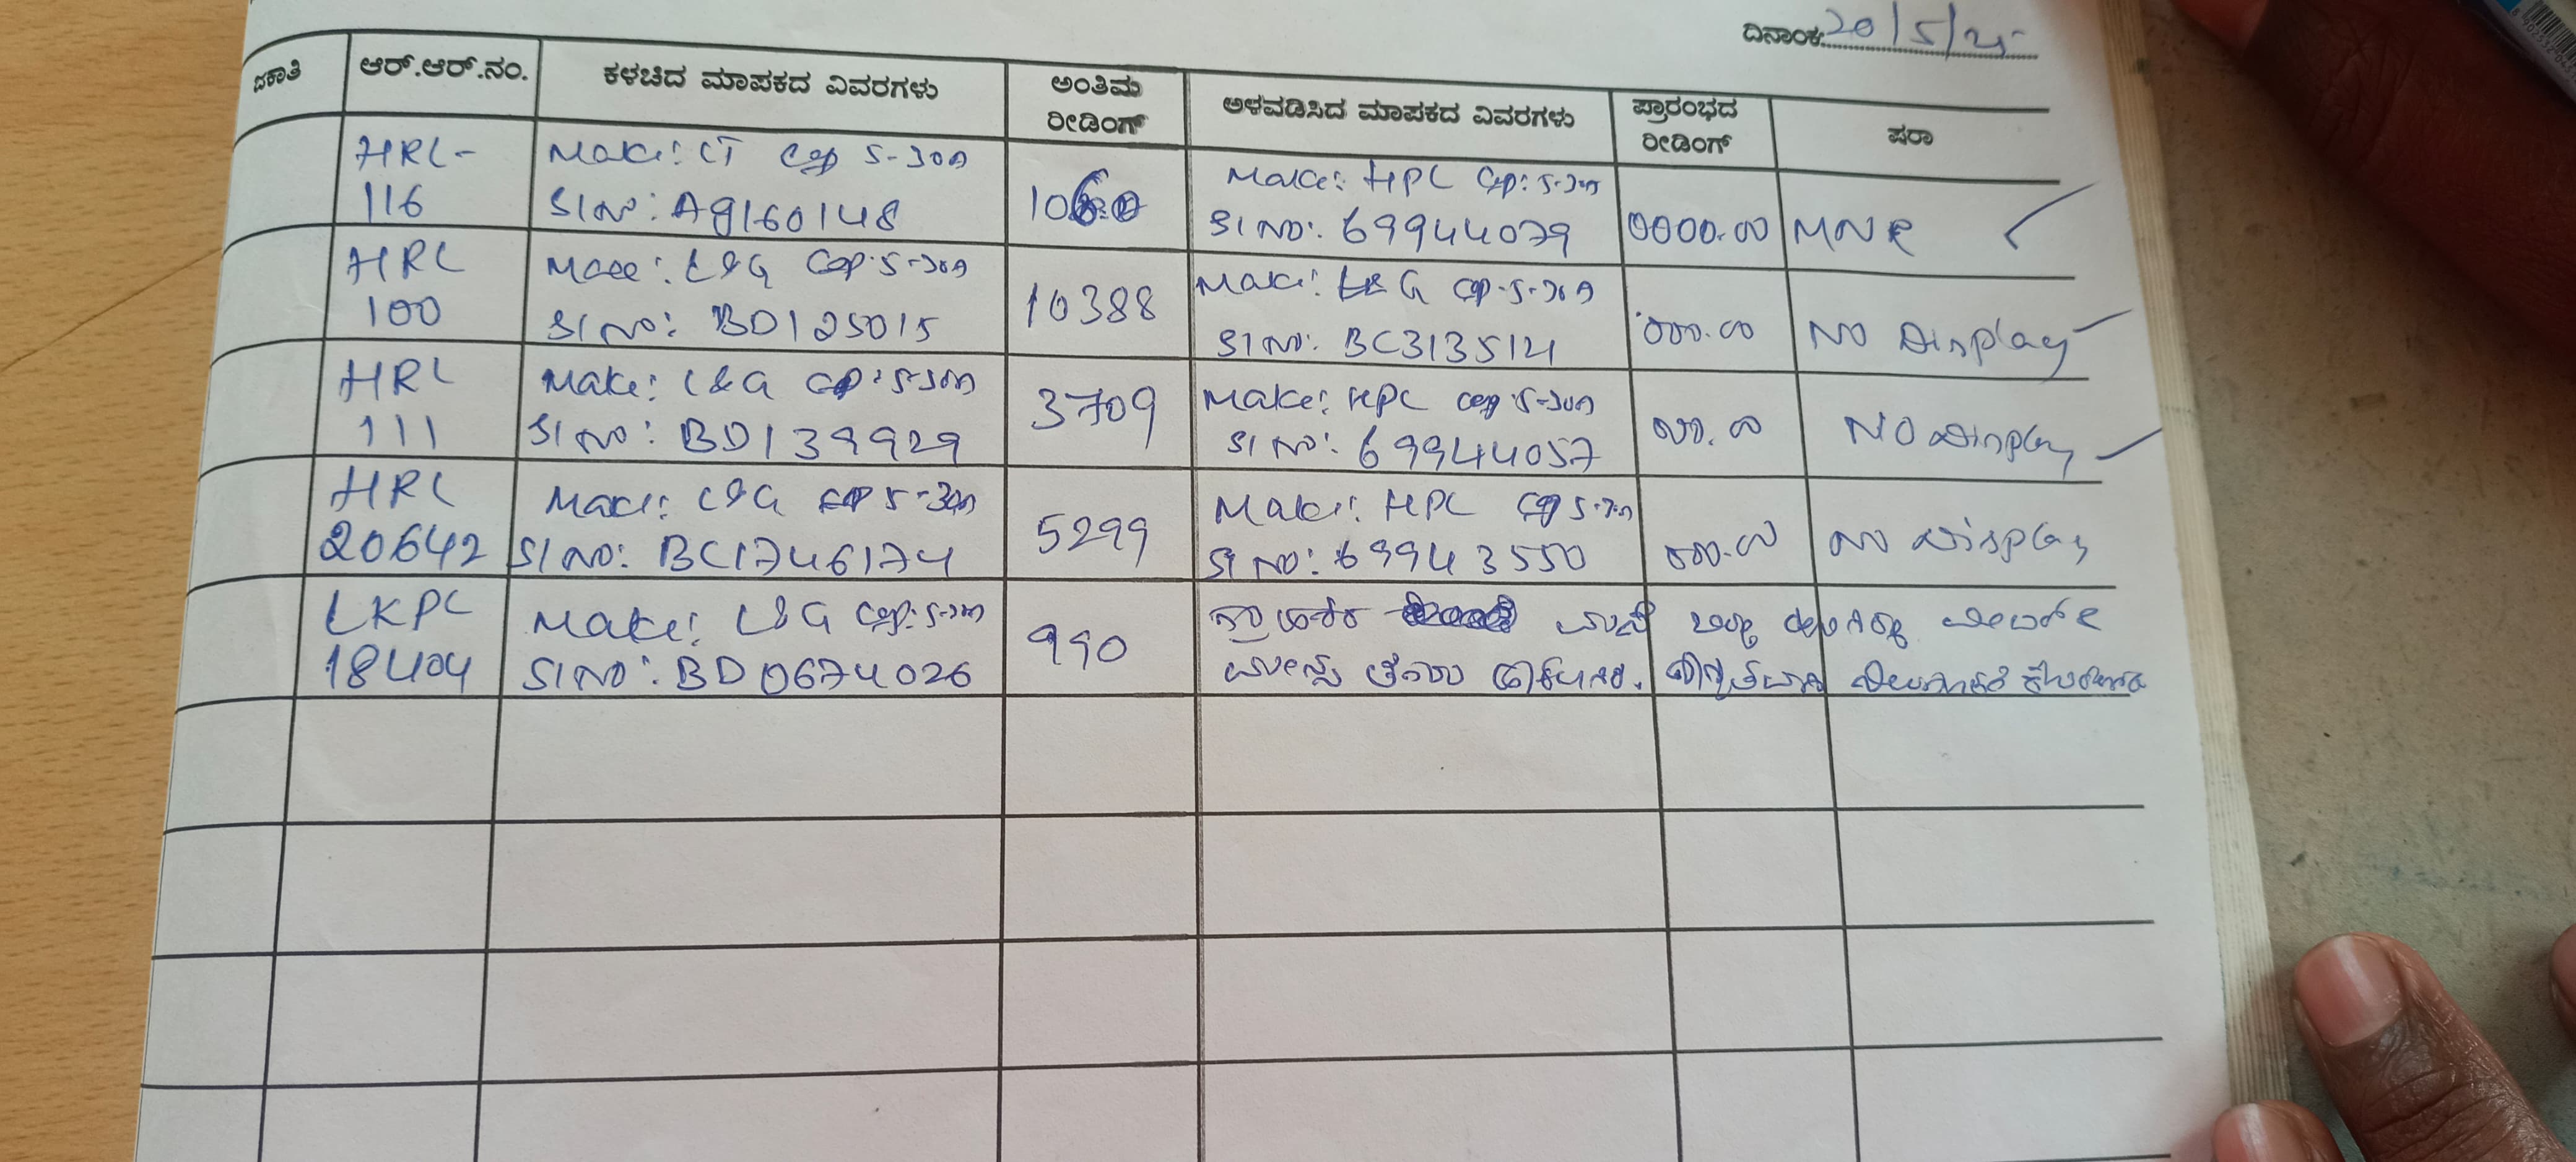 ದಿನಾಂಕ 20/5/25
ಜಕಾತಿ ಆರ್.ಆರ್.ನಂ. ಕಳಚಿದ ಮಾಪಕದ ವಿವರಗಳು ಅಂತಿಮ ರೀಡಿಂಗ್ ಅಳವಡಿಸಿದ ಮಾಪಕದ ವಿವರಗಳು ಪ್ರಾರಂಭದ ರೀಡಿಂಗ್ ಷರಾ
HRL- Make: CT Cap 5-30A Make: HPL Cap: 5-30A
116 Sl No: A9160148 Sl No: 69944079 0000.00 MNR
HRL Make: L&G Cap: 5-30A 10388 Make: L&G Cap-5-30A
100 Sl No: BD125015 Sl No: BC313514 000.00 NO Display
HRL Make: L&G Cap: 5-30A 3709 Make: HPL Cap: 5-30A
111 Sl No: BD139929 Sl No: 69944057 000.0 NO Display
HRL Make: L&G Cap 5-30A 5299 Make: HPL Cap 5-30A
20642 Sl No: BC1746174 Sl No: 69943550 000.00 NO Display
LKPL Make: L&G Cap: 5-30A 990
18404 Sl No: BD0674026